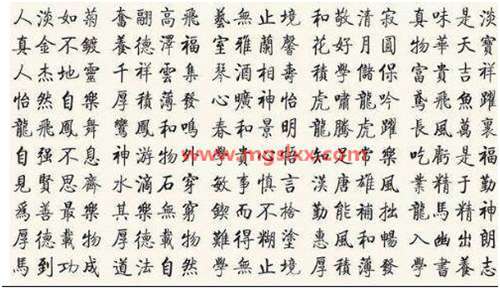 人淡如菊 奮翮高飛 藝無止境 和敬清寂 真味是淡
真金不鍍 養德澤福 室雅蘭馨 花好月圓 物華天寶
人杰地靈 千祥雲集 琴酒相壽 積學儲保 富貴吉祥
怡然自樂 厚積薄發 心曠神怡 虎嘯龍吟 鳶飛魚躍
龍飛鳳舞 鸞鳳和鳴 春和景明 龍騰虎躍 長風萬裏
自强不息 神游物外 知足常樂 吃虧是福
www.mgslxx.com
見賢思齊 水滴石穿 敏事慎言 漢唐雄風 業精于勤
爲善最樂 其樂無窮 鍥而不捨 勤能補拙 龍馬精神
厚德載物 厚德載物 難得糊塗 惠風和暢 入幽出朗
馬到功成 道法自然 學無止境 厚積薄發 學書養志